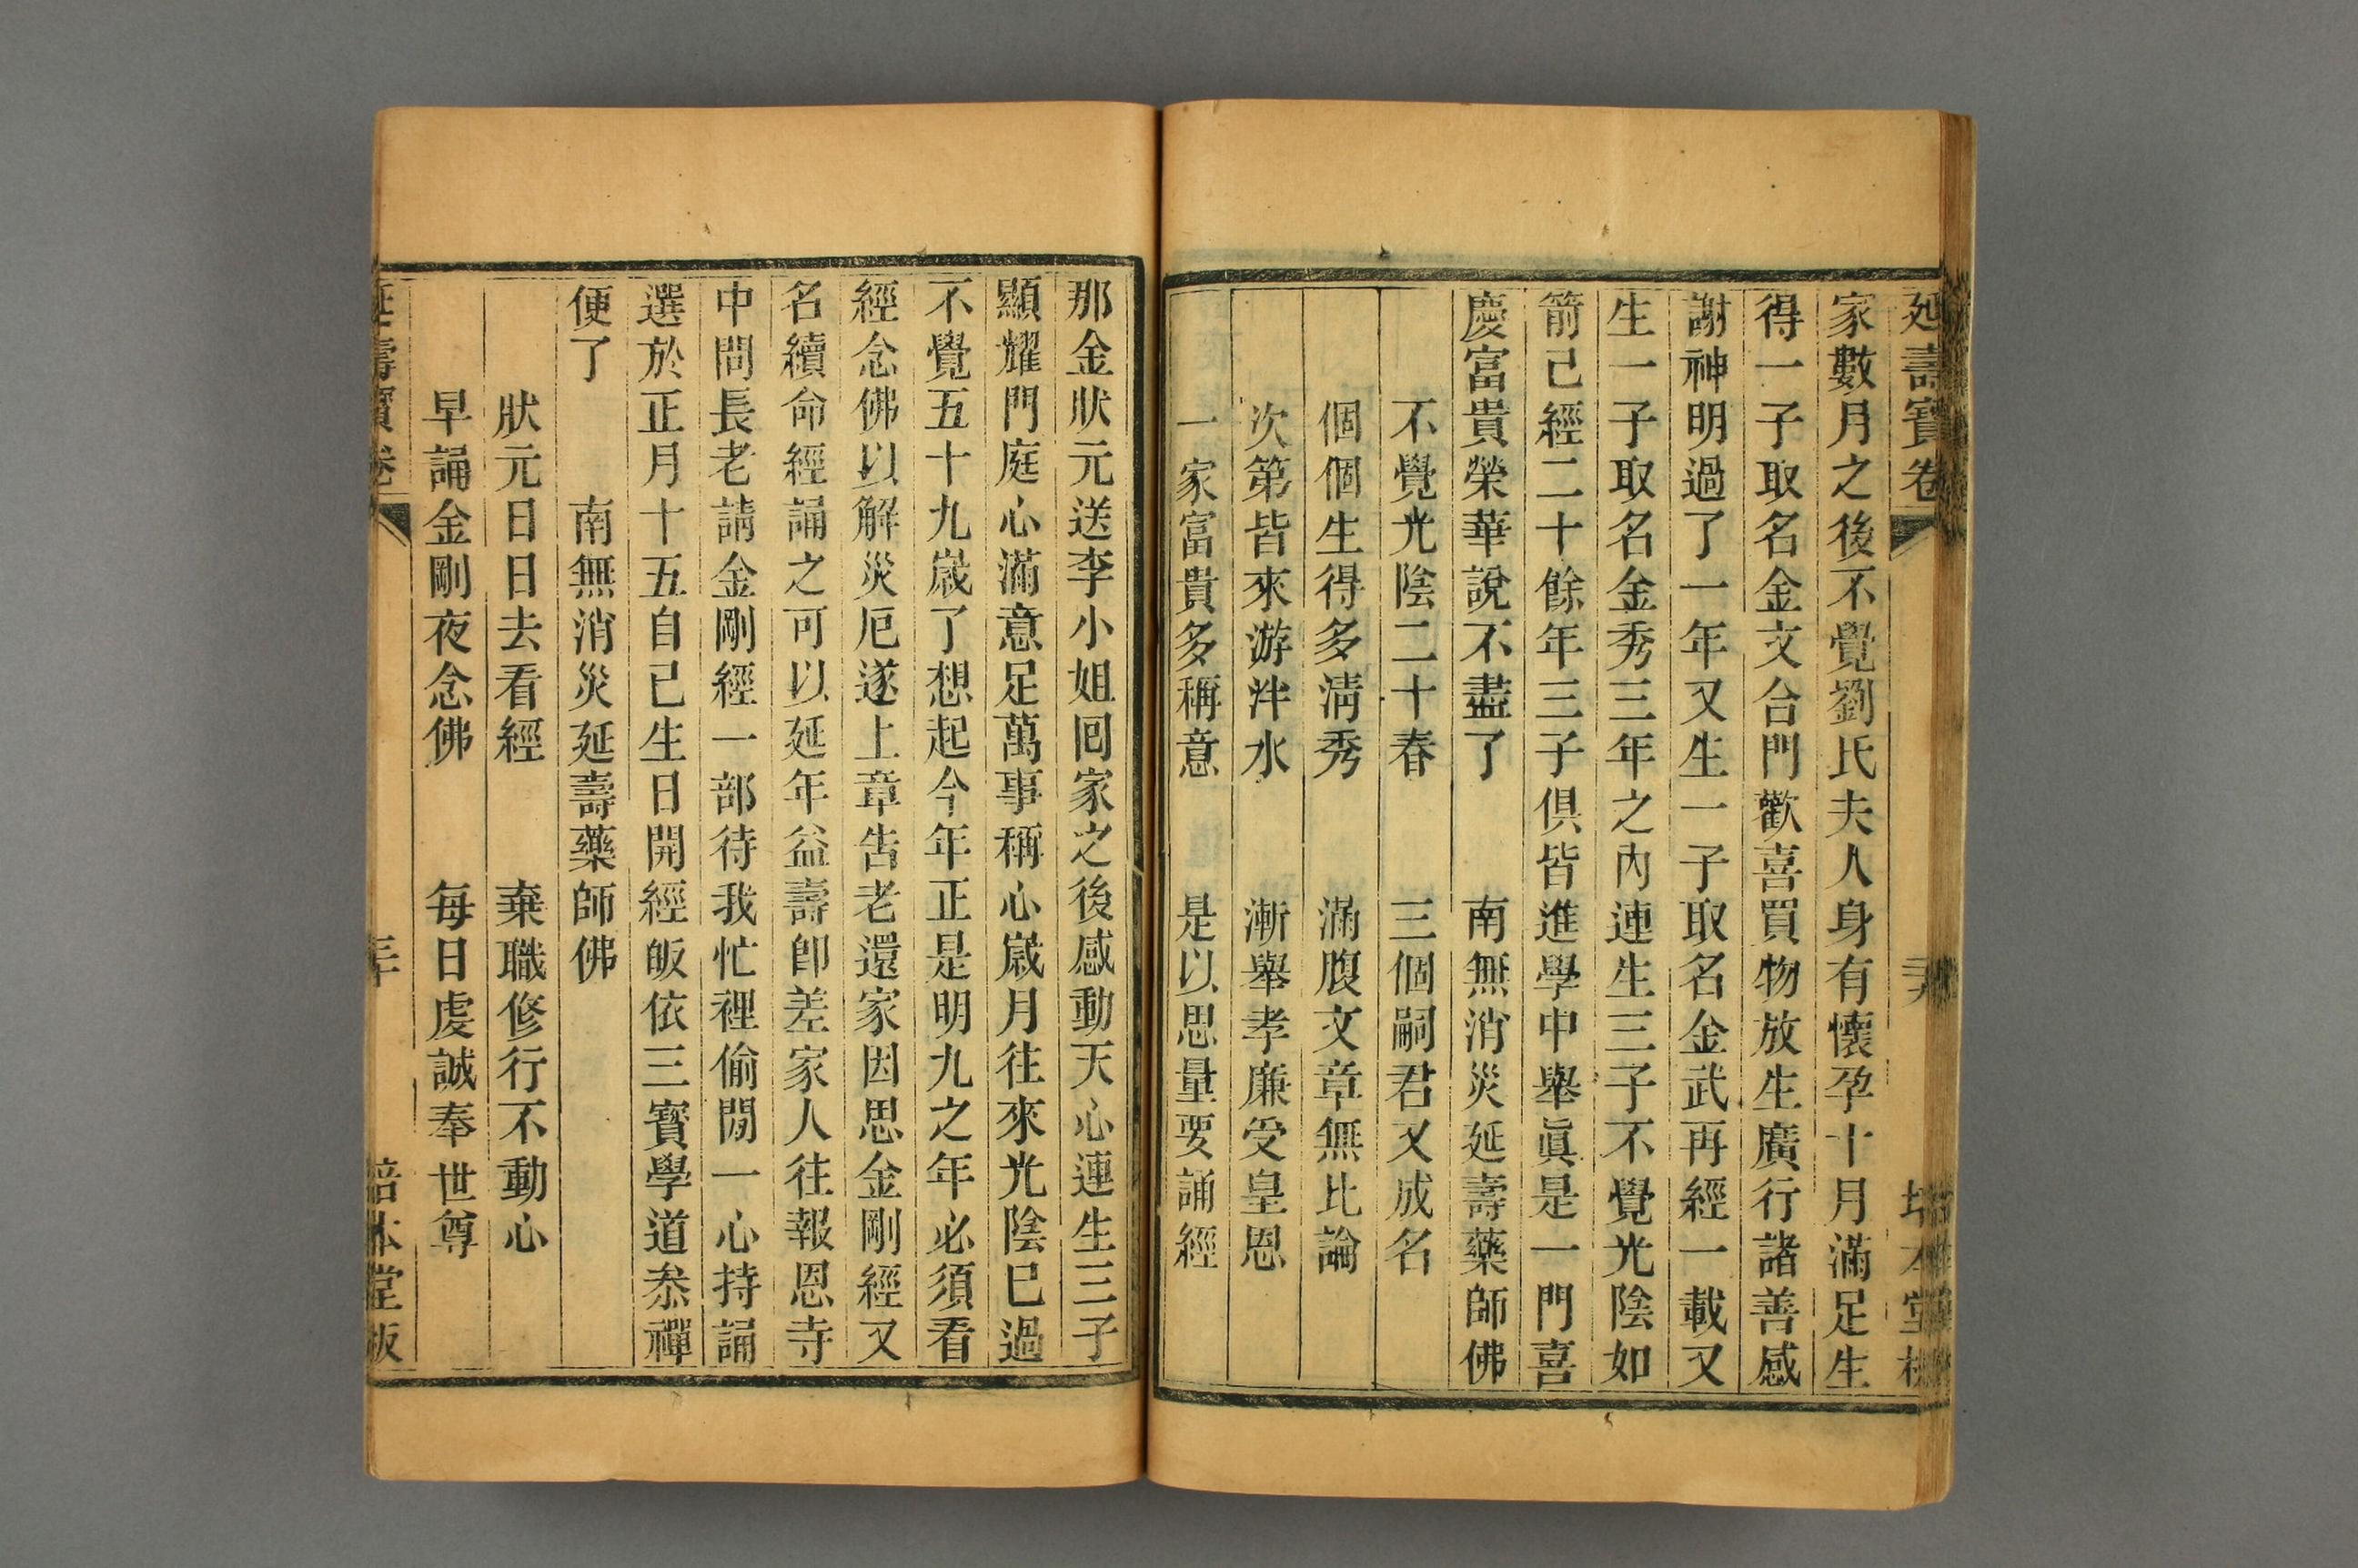 延壽寳卷
家數月之後不覺劉氏夫人身有懷孕十月滿足生
得一子取名金文合門歡喜買物放生廣行諸善感
謝神明過了一年又生一子取名金武再經一載又
生一子取名金秀三年之內連生三子不覺光陰如
箭己經二十餘年三子俱皆進學中舉眞是一門喜
慶富貴榮華說不盡了　　南無消災延壽藥師佛
不覺光陰二十春　　三個嗣君又成名
個個生得多淸秀　　滿腹文章無比論
次第皆來游泮水　　漸舉孝廉受皇恩
一家富貴多稱意　　是以思量要誦經
那金狀元送李小姐囘家之後感動天心連生三子
顯耀門庭心滿意足萬事稱心歲月往來光陰已過
不覺五十九歲了想起今年正是明九之年必須看
經念佛以解災厄遂上章告老還家因思金剛經又
名續命經誦之可以延年益壽卽差家人往報恩寺
中問長老請金剛經一部待我忙裡偷閒一心持誦
選於正月十五自己生日開經皈依三寳學道叅禪
便了　　南無消災延壽藥師佛
狀元日日去看經　　棄職修行不動心
早誦金剛夜念佛　　每日虔誠奉世尊
延壽寳卷　　培本堂板